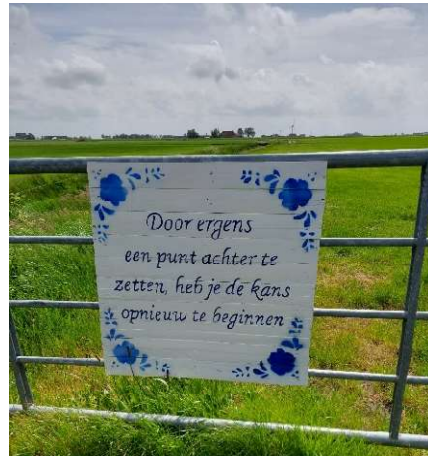 Door ergens
een punt achter te
zetten, heb je de kans
opnieuw te beginnen